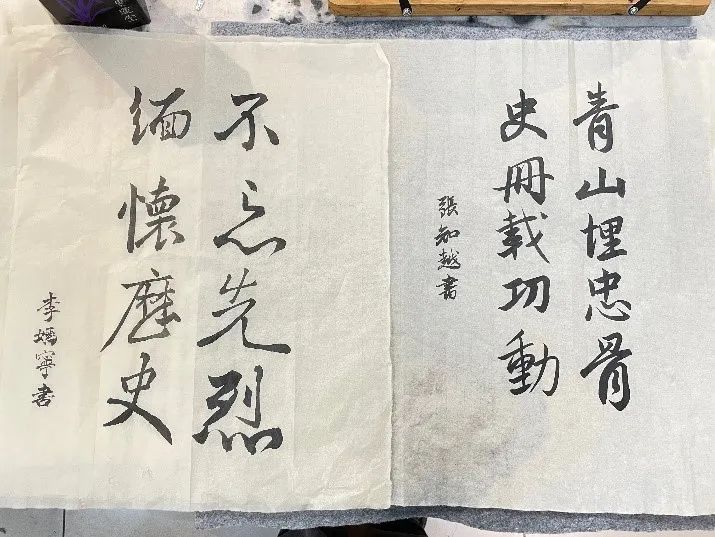 青山埋忠骨
史冊載功動
張知越書
不忘先烈
缅懷歷史
李嫣寧書